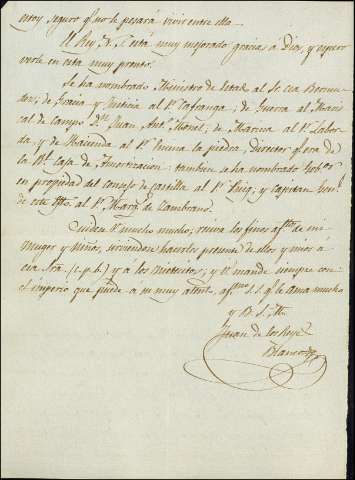 estoy seguro qe. no le pesará vivir entre ella.
El Rey N. S. está muy mejorado gracias a Dios, y espero
verle en esta muy pronto.
Se ha nombrado Ministro de Estado al Sr. Cea Bermu-
dez; de Gracia y Justicia al Sr. Cafranga; de Guerra al Maris-
cal de campo Dn. Juan Anto. Monet; de Marina al Sr. Labor-
da y de Hacienda al Sr. Encina la piedra, Director qe. era de
la Rl. Caja de Amortizacion: tambien se ha nombrado Gobor.
en propiedad del consejo de castilla al Sr. Puig, y capitan Genl.
de este Exto. al Sr. Marqs. de Zambrano.
Cuidese V. mucho mucho; reciva los finos aftos. de mi
muger y Niños, sirviendose hacerles presente de ellos y mios á
esa Sra. (c.p.b.) y á los Nietecitos; y V. mande siempre con
el imperio que puede á su muy atento afmo. s.s. qe. le ama mucho
y B. S. M.
Juan de los Reyes
Blanco